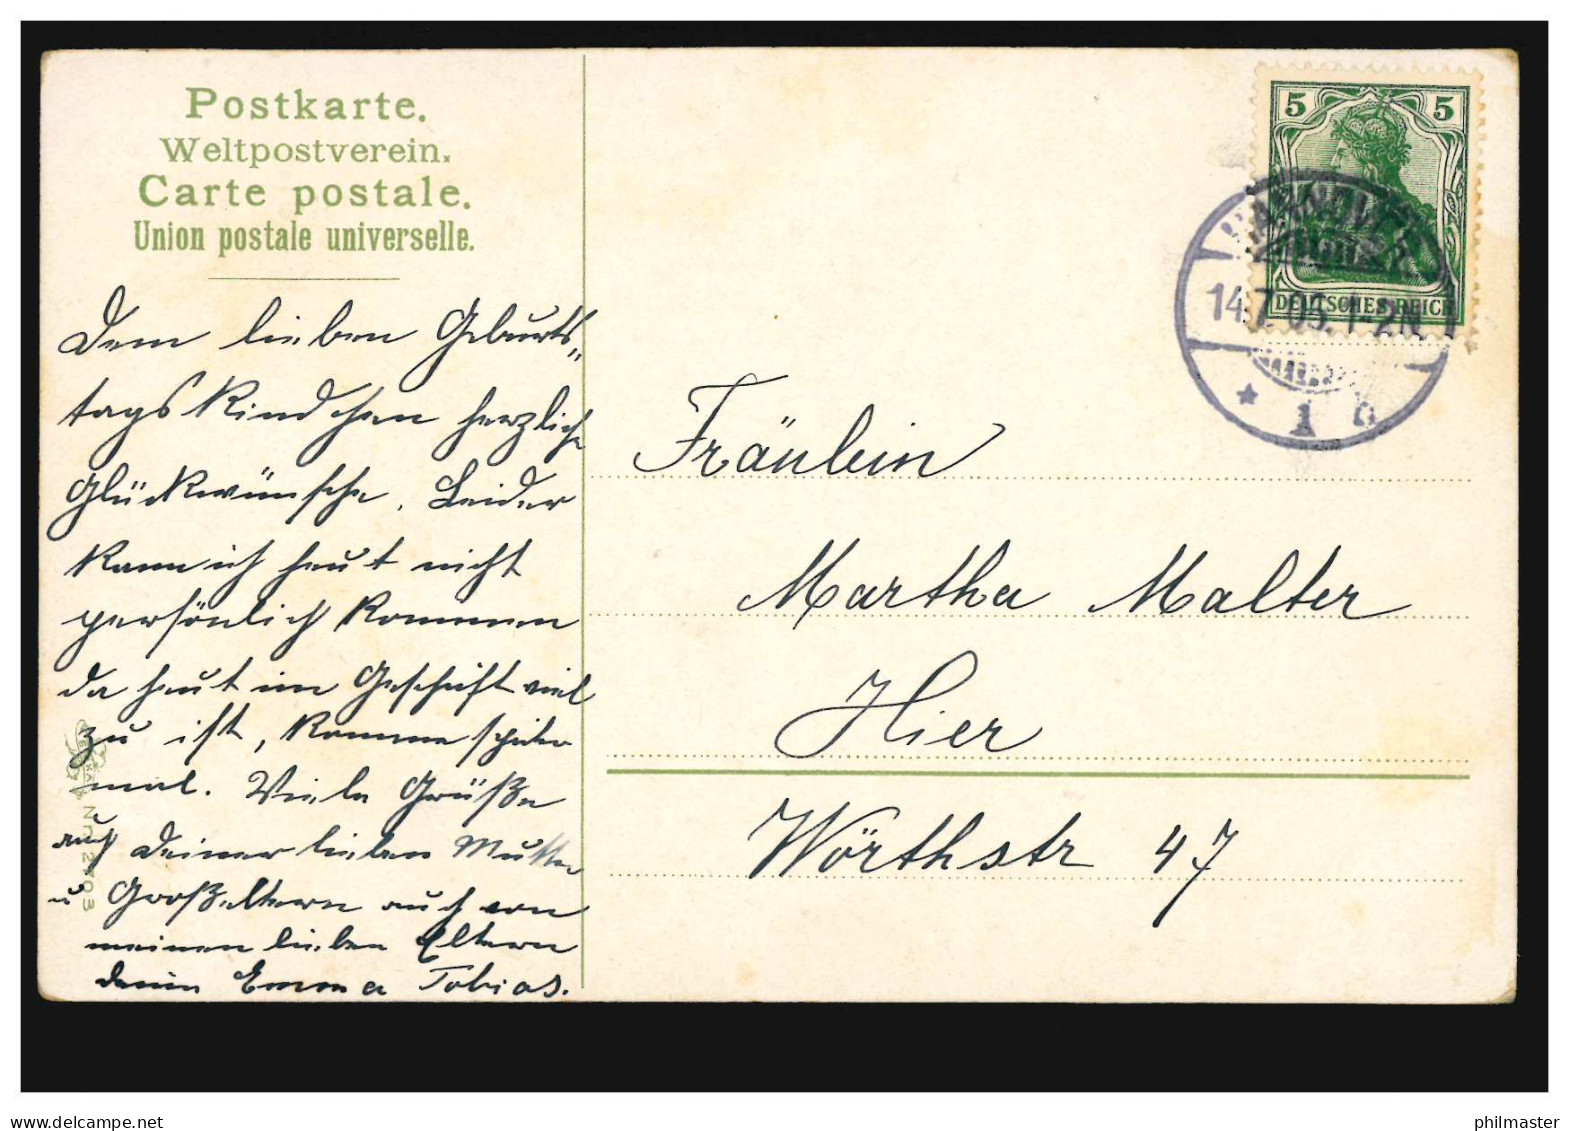 Postkarte.
Weltpostverein.
Carte postale.
Union postale universelle.
Dem lieben Geburts„
tags Kindchen herzliche
Glückwünsche. Leider
kann ich heut nicht
persönlich kommen
da heut im Geschäft viel
zu ist, komme später
mal. Viele Grüße
auch Deiner lieben Mutter
u Großeltern auch von
meinen lieben Eltern
deine Emma Tobias.
5 5
DEUTSCHES REICH
HANNOVER
14.7.05.1-2N
* 1 n
Fräulein
Martha Malter
Hier
Wörthstr 47
delcampe.net
philmaster